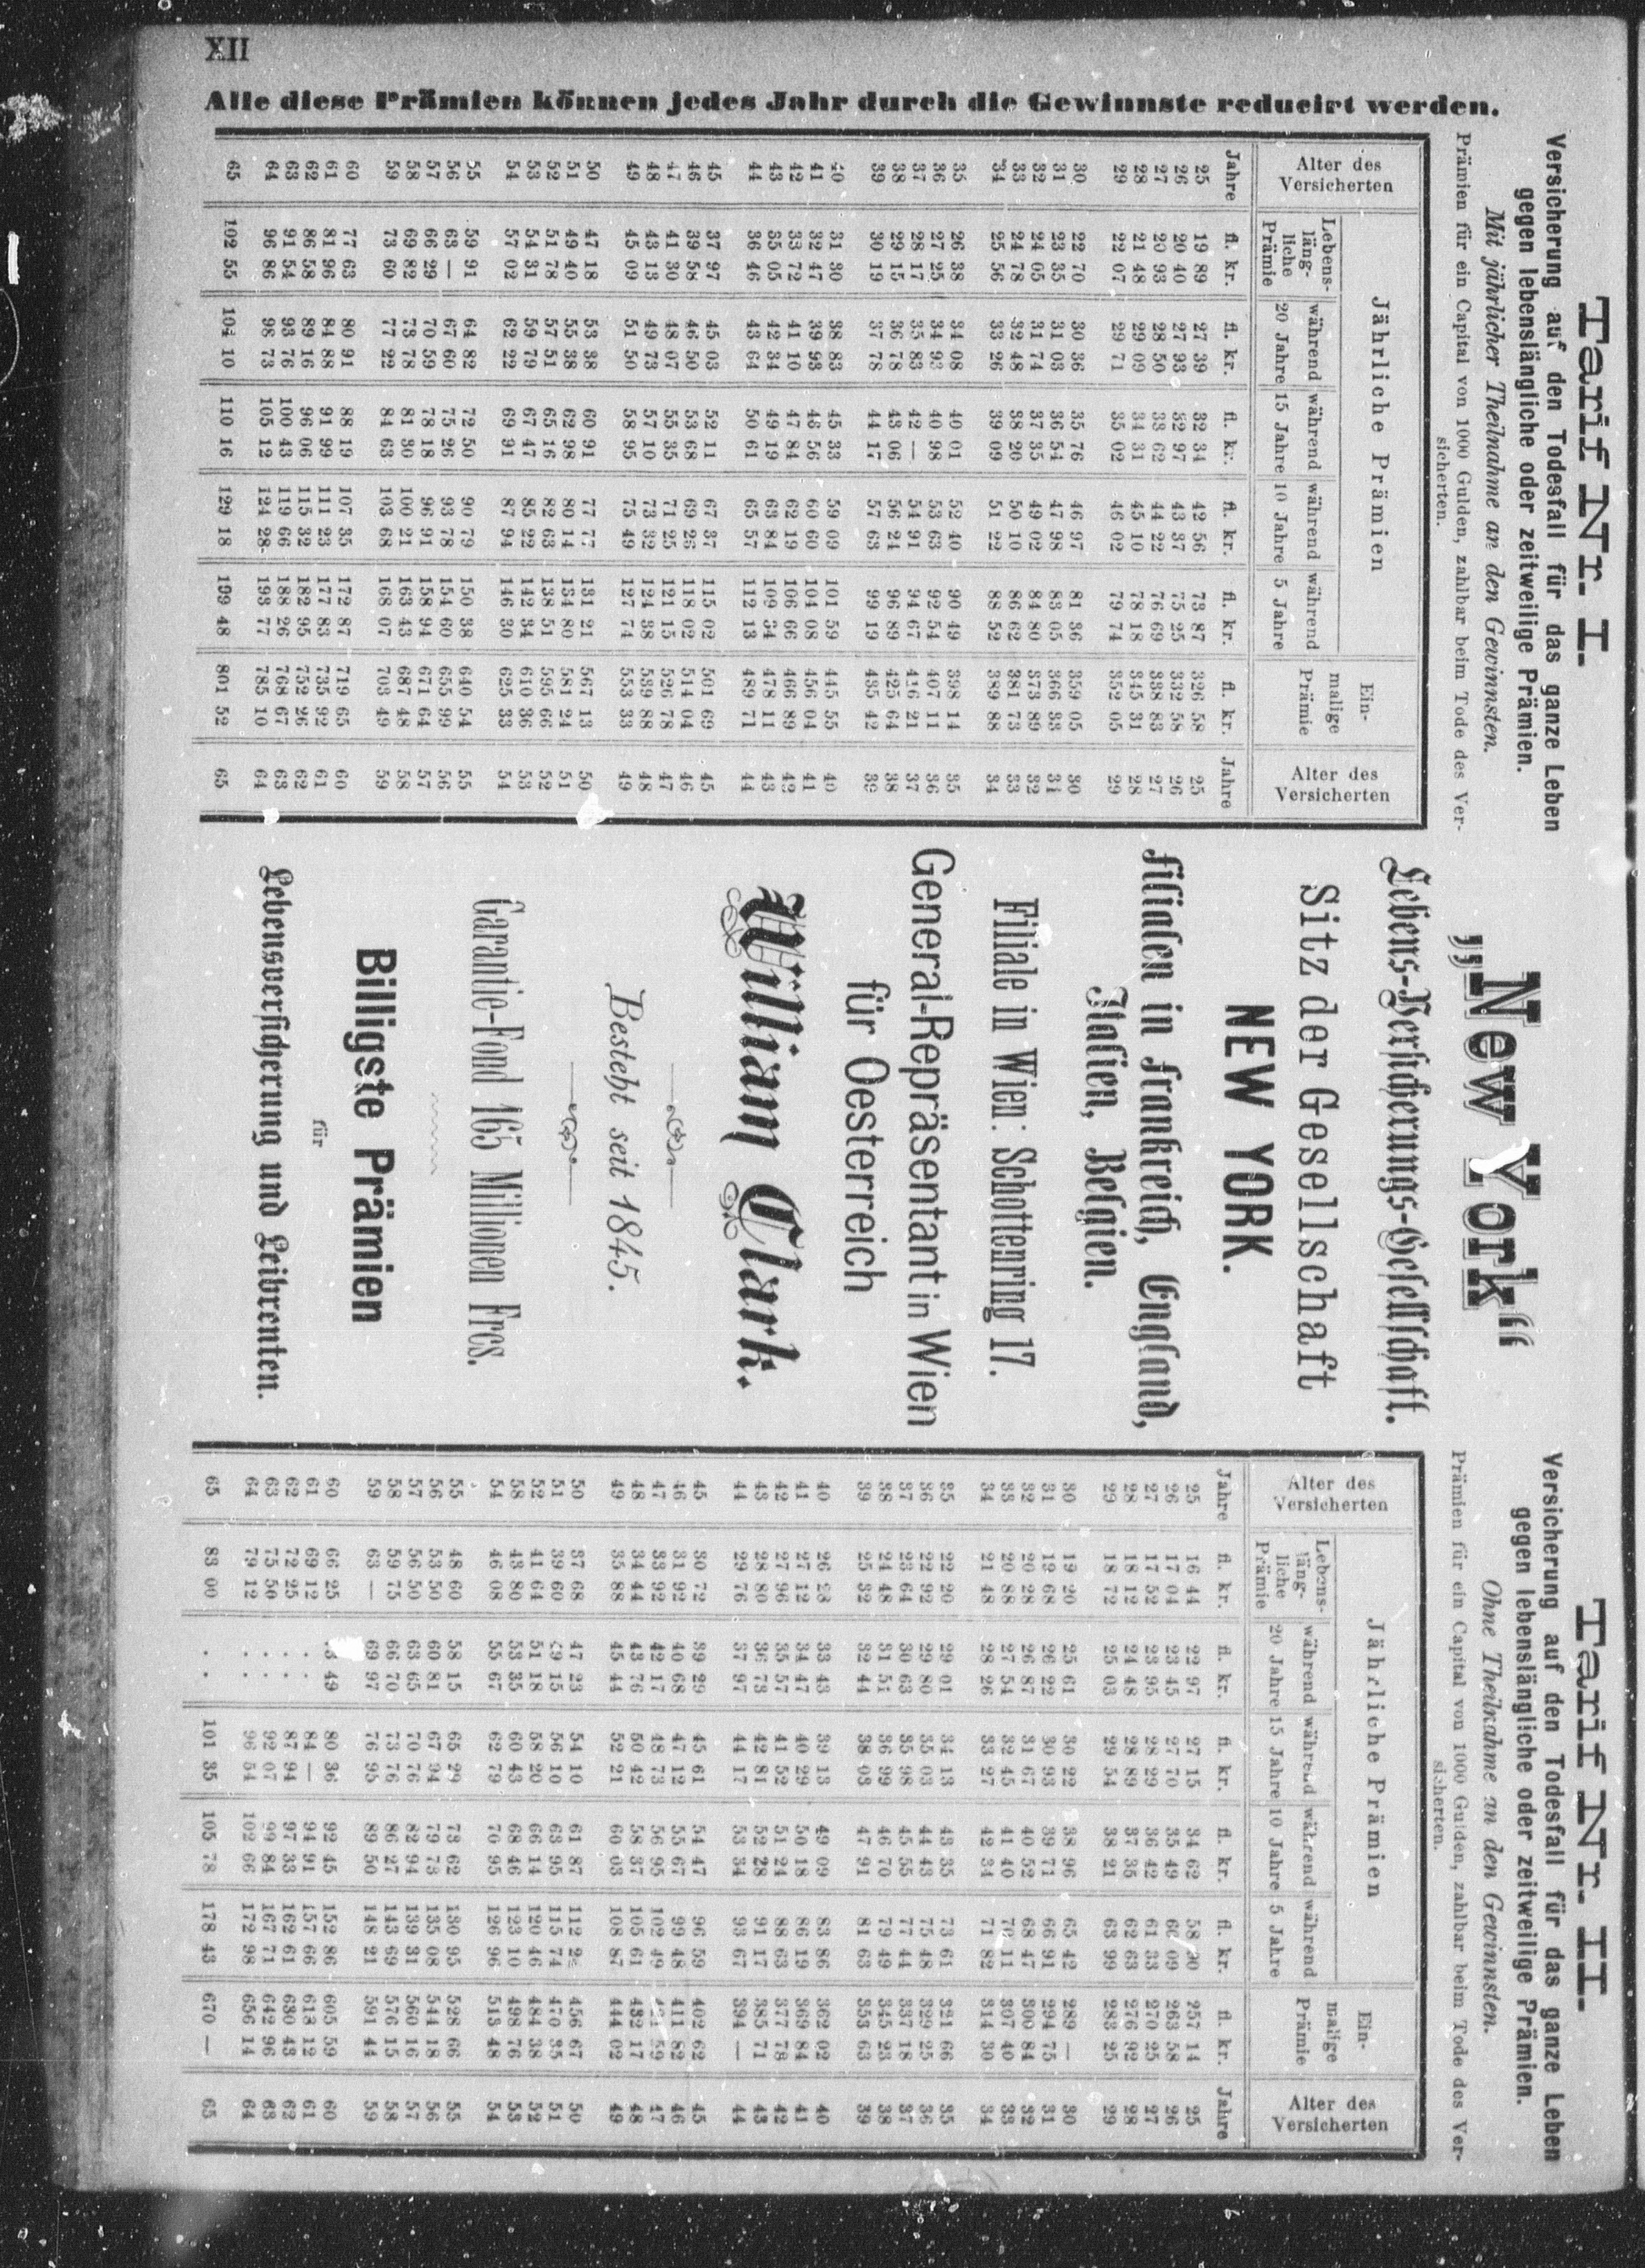 XII
Alle diese Prämien können jedes Jahr durch die Gewinnste reducirt werden.
Tarif Nr. I.
Versicherung auf den Todesfall für das ganze Leben
gegen lebenslängliche oder zeitweilige Prämien.
Mit jährlicher Theilnahme an den Gewinnsten.
Prämien für ein Capital von 1000 Gulden, zahlbar beim Tode des Ver-
sicherten.
Alter des Versicherten | Jährliche Prämien | Ein-malige Prämie | Alter des Versicherten
Lebens-läng-liche Prämie | während 20 Jahre | während 15 Jahre | während 10 Jahre | während 5 Jahre
Jahre fl. kr. fl. kr. fl. kr. fl. kr. fl. kr. fl. kr. Jahre
25 19 89 27 39 32 34 42 56 73 87 326 58 25
26 20 40 27 93 32 97 43 37 75 25 332 58 26
27 20 93 28 50 33 62 44 22 76 69 338 83 27
28 21 48 29 09 34 31 45 10 78 18 345 31 28
29 22 07 29 71 35 02 46 02 79 74 352 05 29
30 22 70 30 36 35 76 46 97 81 36 359 05 30
31 23 35 31 03 36 54 47 98 83 05 366 33 31
32 24 05 31 74 37 35 49 02 84 80 373 89 32
33 24 78 32 48 38 20 50 10 86 62 381 73 33
34 25 56 33 26 39 09 51 22 88 52 389 88 34
35 26 38 34 08 40 01 52 40 90 49 398 14 35
36 27 25 34 93 40 98 53 63 92 54 407 11 36
37 28 17 35 83 42 — 54 91 94 67 416 21 37
38 29 15 36 78 43 06 56 24 96 89 425 64 38
39 30 19 37 78 44 17 57 63 99 19 435 42 39
40 31 30 38 83 45 33 59 09 101 59 445 55 40
41 32 47 39 93 46 56 60 60 104 08 456 04 41
42 33 72 41 10 47 84 62 19 106 66 466 89 42
43 35 05 42 34 49 19 63 84 109 34 478 11 43
44 36 46 43 64 50 61 65 57 112 13 489 71 44
45 37 97 45 03 52 11 67 37 115 02 501 69 45
46 39 58 46 50 53 68 69 26 118 02 514 04 46
47 41 30 48 07 55 35 71 25 121 15 526 78 47
48 43 13 49 73 57 10 73 32 124 38 539 88 48
49 45 09 51 50 58 95 75 49 127 74 553 33 49
50 47 18 53 38 60 91 77 77 131 21 567 13 50
51 49 40 55 38 62 98 80 14 134 80 581 24 51
52 51 78 57 51 65 16 82 63 138 51 595 66 52
53 54 31 59 79 67 47 85 22 142 34 610 36 53
54 57 02 62 22 69 91 87 94 146 30 625 33 54
55 59 91 64 82 72 50 90 79 150 38 640 54 55
56 63 — 67 60 75 26 93 78 154 60 655 99 56
57 66 29 70 59 78 18 96 91 158 94 671 64 57
58 69 82 73 78 81 30 100 21 163 43 687 48 58
59 73 60 77 22 84 63 103 68 168 07 703 49 59
60 77 63 80 91 88 19 107 35 172 87 719 65 60
61 81 96 84 88 91 99 111 23 177 83 735 92 61
62 86 58 89 16 96 06 115 32 182 95 752 26 62
63 91 54 93 76 100 43 119 66 188 26 768 67 63
64 96 86 98 73 105 12 124 28 193 77 785 10 64
65 102 55 104 10 110 16 129 18 199 48 801 52 65
„New York“
Lebens-Versicherungs-Gesellschaft.
Sitz der Gesellschaft
NEW YORK.
Filialen in Frankreich, England,
Italien, Belgien.
Filiale in Wien: Schottenring 17.
General-Repräsentant in Wien
für Oesterreich
William Clark.
Besteht seit 1845.
Garantie-Fond 165 Millionen Frcs.
Billigste Prämien
für
Lebensversicherung und Leibrenten.
Tarif Nr. II.
Versicherung auf den Todesfall für das ganze Leben
gegen lebenslängliche oder zeitweilige Prämien.
Ohne Theilnahme an den Gewinnsten.
Prämien für ein Capital von 1000 Gulden, zahlbar beim Tode des Ver-
sicherten.
Alter des Versicherten | Jährliche Prämien | Ein-malige Prämie | Alter des Versicherten
Lebens-läng-liche Prämie | während 20 Jahre | während 15 Jahre | während 10 Jahre | während 5 Jahre
Jahre fl. kr. fl. kr. fl. kr. fl. kr. fl. kr. fl. kr. Jahre
25 16 44 22 97 27 15 34 62 58 257 14 25
26 17 04 23 45 27 70 35 49 60 09 263 58 26
27 17 52 23 95 28 29 36 42 61 33 270 25 27
28 18 12 24 48 28 89 37 35 62 63 276 92 28
29 18 72 25 03 29 54 38 21 63 99 283 25 29
30 19 20 25 61 30 22 38 96 65 42 289 — 30
31 19 68 26 22 30 93 39 71 66 91 294 75 31
32 20 28 26 87 31 67 40 52 68 47 300 84 32
33 20 88 27 54 32 45 41 40 70 11 307 40 33
34 21 48 28 26 33 27 42 34 71 82 314 30 34
35 22 20 29 01 34 13 43 35 73 61 321 66 35
36 22 92 29 80 35 03 44 43 75 48 329 25 36
37 23 64 30 63 35 98 45 55 77 44 337 18 37
38 24 48 31 51 36 99 46 70 79 49 345 23 38
39 25 32 32 44 38 03 47 91 81 63 353 63 39
40 26 28 33 43 39 13 49 09 83 86 362 02 40
41 27 12 34 47 40 29 50 18 86 19 369 84 41
42 27 96 35 57 41 52 51 24 88 63 377 78 42
43 28 80 36 73 42 81 52 28 91 17 385 71 43
44 29 76 37 97 44 17 53 34 93 67 394 — 44
45 30 72 39 29 45 61 54 47 96 59 402 62 45
46 31 92 40 68 47 12 55 67 99 48 411 82 46
47 33 92 42 17 48 73 56 95 102 49 59 47
48 34 44 43 76 50 42 58 37 105 61 432 17 48
49 35 88 45 44 52 21 60 03 108 87 444 02 49
50 37 68 47 23 54 10 61 87 112 456 67 50
51 39 60 49 15 56 10 63 95 115 74 470 35 51
52 41 64 51 18 58 20 66 14 120 46 484 38 52
53 43 80 53 35 60 43 68 46 123 10 498 76 53
54 46 08 55 67 62 79 70 95 126 96 513 48 54
55 48 60 58 15 65 29 73 62 130 95 528 66 55
56 53 50 60 81 67 94 79 73 135 08 544 18 56
57 56 50 63 65 70 76 82 94 139 31 560 16 57
58 59 75 66 70 73 76 86 27 143 69 576 15 58
59 63 — 69 97 76 95 89 50 148 21 591 44 59
60 66 25 49 80 36 92 45 152 86 605 59 60
61 69 12 . . 84 — 94 91 157 66 618 12 61
62 72 25 . . 87 94 97 33 162 61 630 43 62
63 75 50 . . 92 07 99 84 167 71 642 96 63
64 79 12 . . 96 54 102 66 172 98 656 14 64
65 83 00 . . 101 35 105 78 178 43 670 — 65